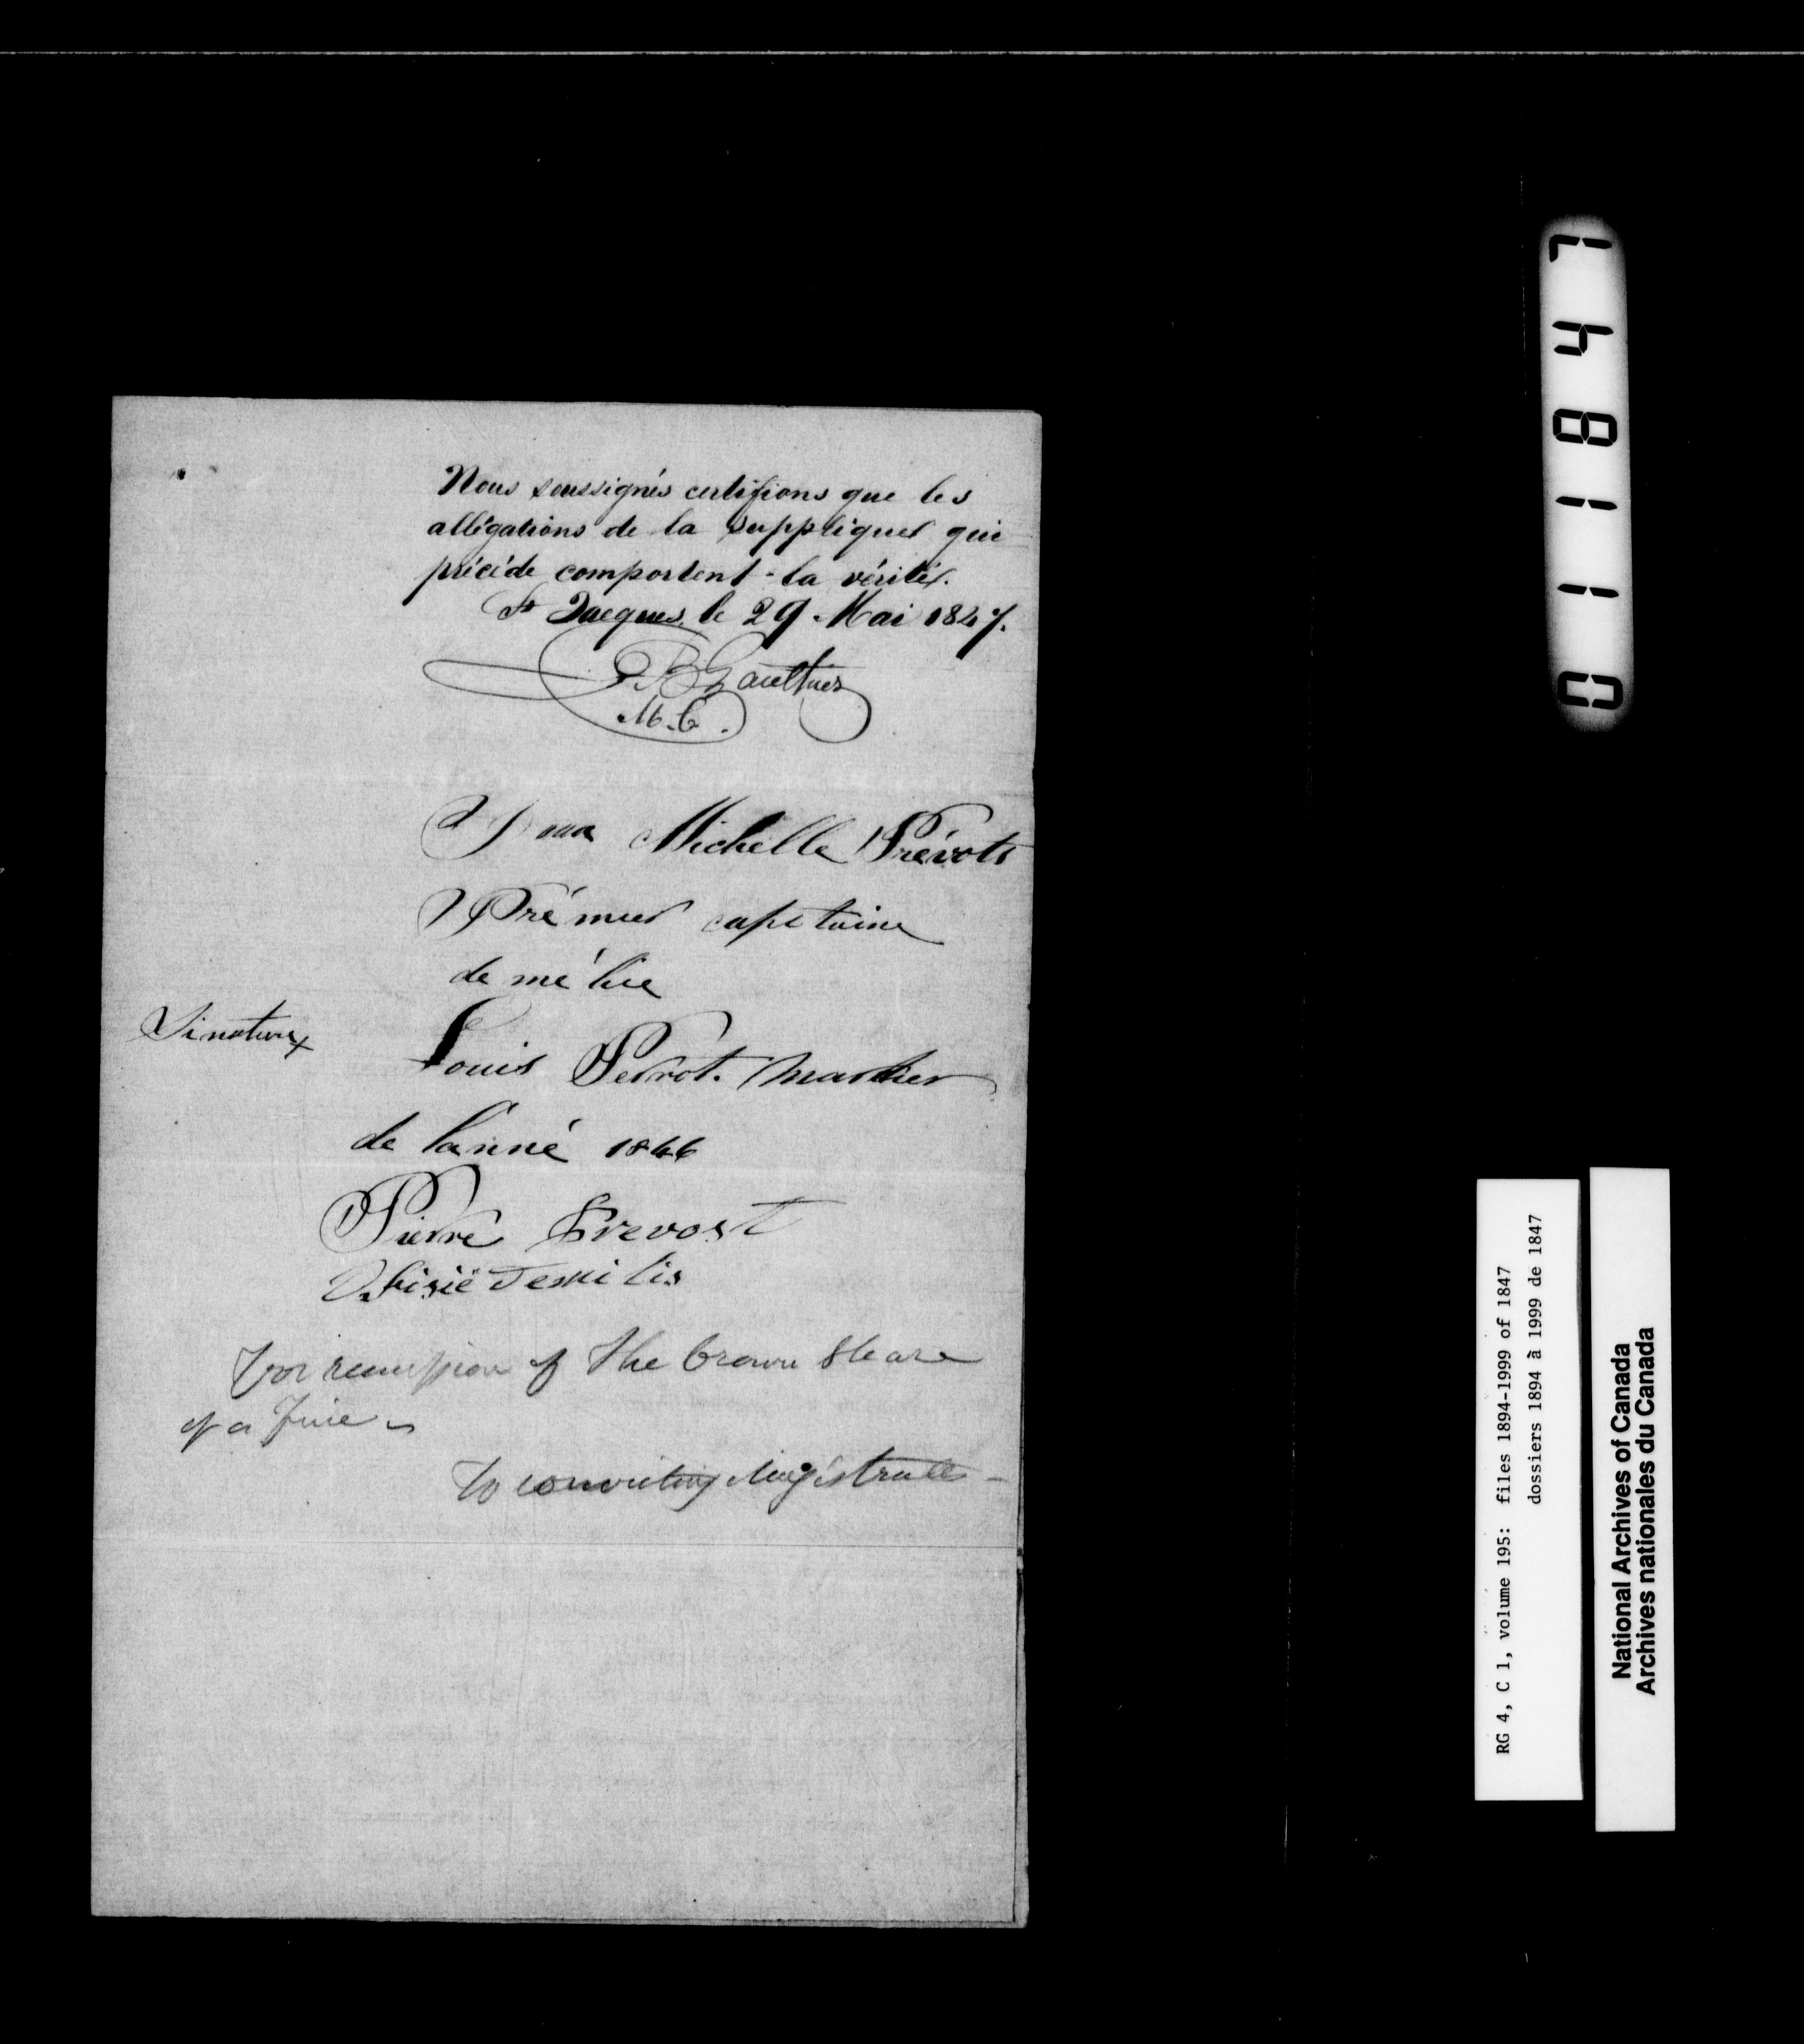 Nous soussignés certifions que les
allégations de la supplique qui
précède comportent la vérité.
St Jacques le 29 Mai 1847.
Gaulthier
M.C.
Michelle Prévots
Prémier capitaine
de mélice
Sinature x
Louis Perrot. Marther
de l'anné 1846
Pierre Prevost
For remission of the Crown Share
of a Fine
To convicting Magistrate
0 1 1 8 4 7
RG 4, C 1, volume 195: files 1894-1999 of 1847
dossiers 1894 à 1999 de 1847
National Archives of Canada
Archives nationales du Canada